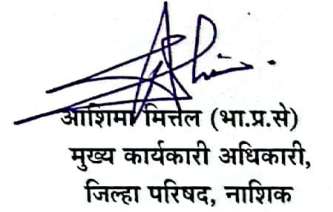 आशिमा मित्तल (भा.प्र.से)
मुख्य कार्यकारी अधिकारी,
जिल्हा परिषद, नाशिक